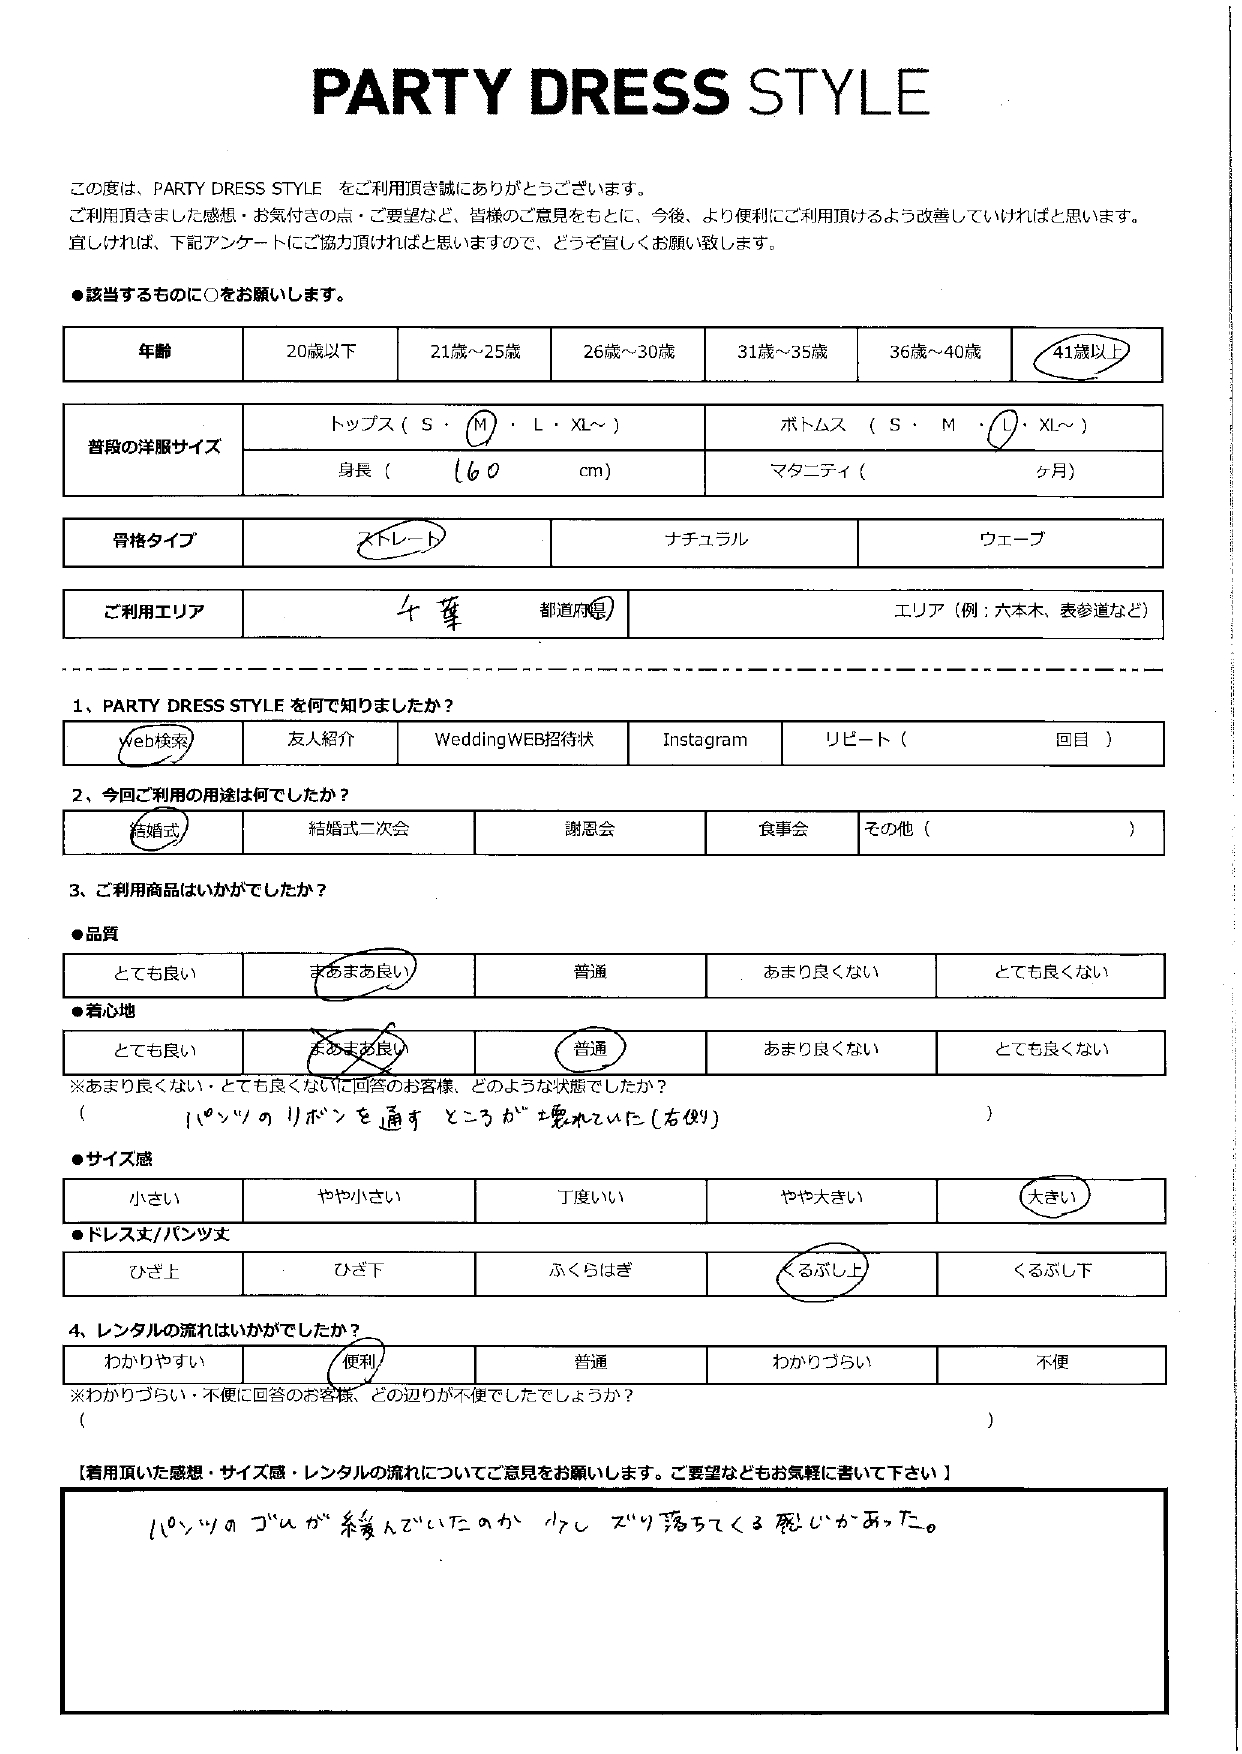 PARTY DRESS STYLE
この度は、PARTY DRESS STYLE をご利用頂き誠にありがとうございます。
ご利用頂きました感想・お気付きの点・ご要望など、皆様のご意見をもとに、今後、より便利にご利用頂けるよう改善していければと思います。
宜しければ、下記アンケートにご協力頂ければと思いますので、どうぞ宜しくお願い致します。
●該当するものに○をお願いします。
年齢 20歳以下 21歳～25歳 26歳～30歳 31歳～35歳 36歳～40歳 41歳以上
普段の洋服サイズ トップス ( S ・ M ・ L ・ XL～ ) ボトムス ( S ・ M ・ L ・ XL～ )
身長 ( 160 cm) マタニティ ( ヶ月)
骨格タイプ ストレート ナチュラル ウェーブ
ご利用エリア 千葉 都道府県 エリア（例：六本木、表参道など）
1、PARTY DRESS STYLE を何で知りましたか？
Web検索 友人紹介 WeddingWEB招待状 Instagram リピート ( 回目 )
2、今回ご利用の用途は何でしたか？
結婚式 結婚式二次会 謝恩会 食事会 その他 ( )
3、ご利用商品はいかがでしたか？
●品質
とても良い まあまあ良い 普通 あまり良くない とても良くない
●着心地
とても良い まあまあ良い 普通 あまり良くない とても良くない
※あまり良くない・とても良くないに回答のお客様、どのような状態でしたか？
( パンツのリボンを通すところが壊れていた(右側) )
●サイズ感
小さい やや小さい 丁度いい やや大きい 大きい
●ドレス丈/パンツ丈
ひざ上 ひざ下 ふくらはぎ くるぶし上 くるぶし下
4、レンタルの流れはいかがでしたか？
わかりやすい 便利 普通 わかりづらい 不便
※わかりづらい・不便に回答のお客様、どの辺りが不便でしたでしょうか？
( )
【着用頂いた感想・サイズ感・レンタルの流れについてご意見をお願いします。ご要望などもお気軽に書いて下さい 】
パンツのゴムが緩んでいたのか 少し ズリ落ちてくる感じがあった。